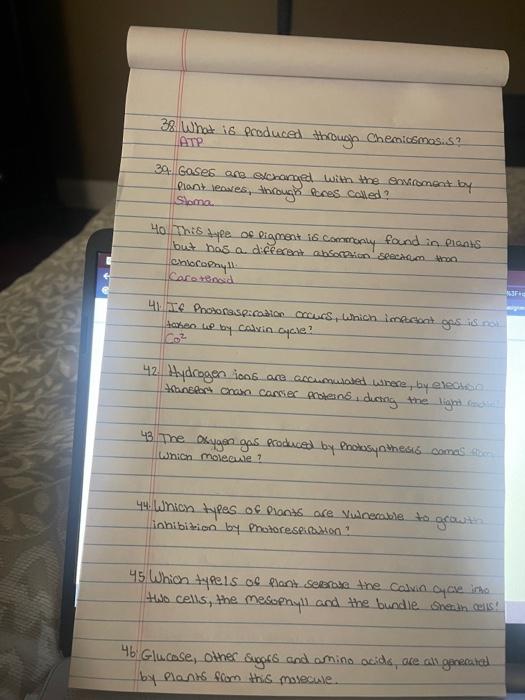 38. What is produced through Chemiosmosis?
ATP
39. Gases are exchanged with the enviroment by
Plant leaves, through Pores called?
Stoma
40. This type of Pigment is commonly found in Plants
but has a different absorption spectrum than
chlorophyll.
Carotenoid
41. If Photorespiration occurs, which important gas is not
taken up by calvin cycle?
Co²
42. Hydrogen ions are accumulated where, by electron
transport chain carrier proteins, during the light
43. The Oxygen gas produced by Photosynthesis comes from
which molecule?
44. Which types of Plants are vulnerable to growth
inhibition by Photorespiration?
45. Which type/s of Plant seperate the Calvin cycle into
two cells, the mesophyll and the bundle sheath cells?
46. Glucose, other sugars and amino acids, are all generated
by plants from this molecule.